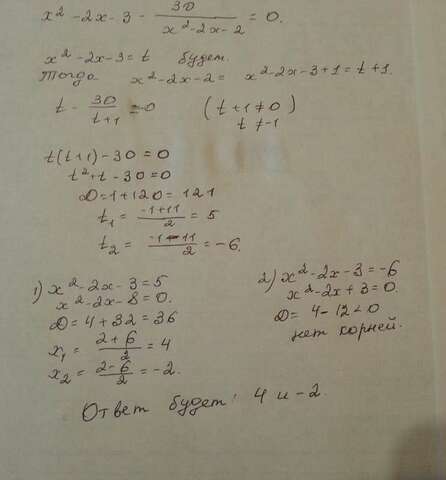 x² - 2x - 3 - 30/(x² - 2x - 2) = 0.
x² - 2x - 3 = t будет.
Тогда x² - 2x - 2 = x² - 2x - 3 + 1 = t + 1.
t - 30/(t+1) = 0 (t + 1 ≠ 0)
t ≠ -1
t(t+1) - 30 = 0
t² + t - 30 = 0
D = 1 + 120 = 121
t₁ = (-1+11)/2 = 5
t₂ = (-1-11)/2 = -6.
1) x² - 2x - 3 = 5
x² - 2x - 8 = 0.
D = 4 + 32 = 36
x₁ = (2+6)/2 = 4
x₂ = (2-6)/2 = -2.
2) x² - 2x - 3 = -6
x² - 2x + 3 = 0.
D = 4 - 12 < 0
нет корней.
Ответ будет: 4 и -2.